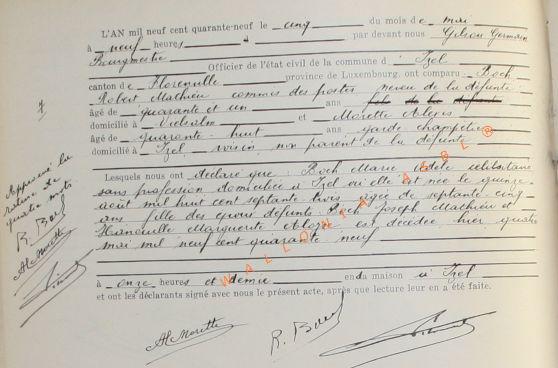 L'AN mil neuf cent quarante-neuf le cinq du mois de mai
à neuf heures à par devant nous Gilson Germain
Bourgmestre
Officier de l'état civil de la commune d' Izel
canton de Florenville province de Luxembourg, ont comparu Boch
Robert Mathieu commis des postes neveu de la défunte
âgé de quarante et un ans fils de la défunte
domicilié à Vielsalm et Morette Aloys
âgé de quarante huit ans garde champêtre
domicilié à Izel voisin non parent de la défunte
Lesquels nous ont déclaré que : Boch Marie Adèle célibataire
sans profession domiciliée à Izel où elle est née le quinze
août mil huit cent septante trois âgée de septante cinq
ans fille des époux défunts Boch Joseph Mathieu et
Marguerite est décédée hier quatre
mai mil neuf cent quarante neuf
à onze heures et demie en da maison à Izel
et ont les déclarants signé avec nous le présent acte, après que lecture leur en a été faite.
Al Morette
R. Boch
Approuvé la
rature de
quatre mots
R. Boch
Al Morette
WALLONIA ASBL ®